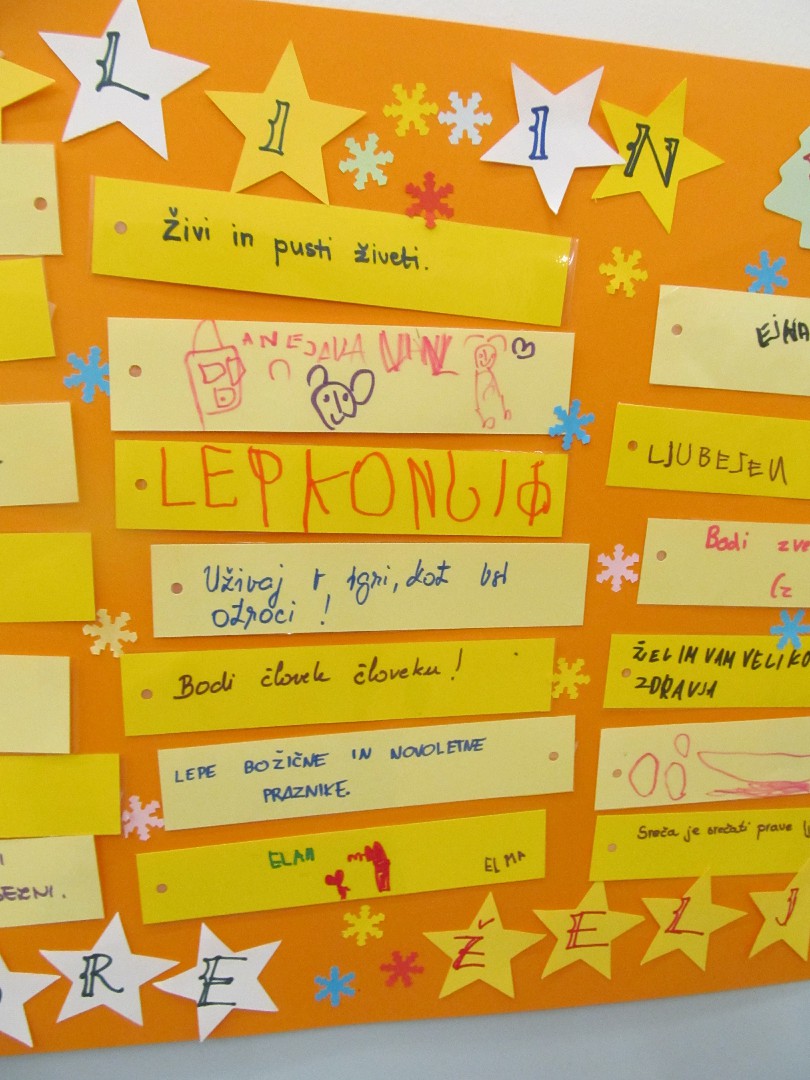 L I I N
Živi in pusti živeti.
ANEJAVA
LEP KON
Uživaj v igri, kot vsi
otroci !
Bodi človek človeku !
LEPE BOŽIČNE IN NOVOLETNE
PRAZNIKE.
ELAN
ELMA
EJHA
LJUBEJEN
Bodi zve
(z
ŽELIM VAM VELIKO
ZDRAVJA
Sreča je srečati prave
SERNI.
RE ŽELJ